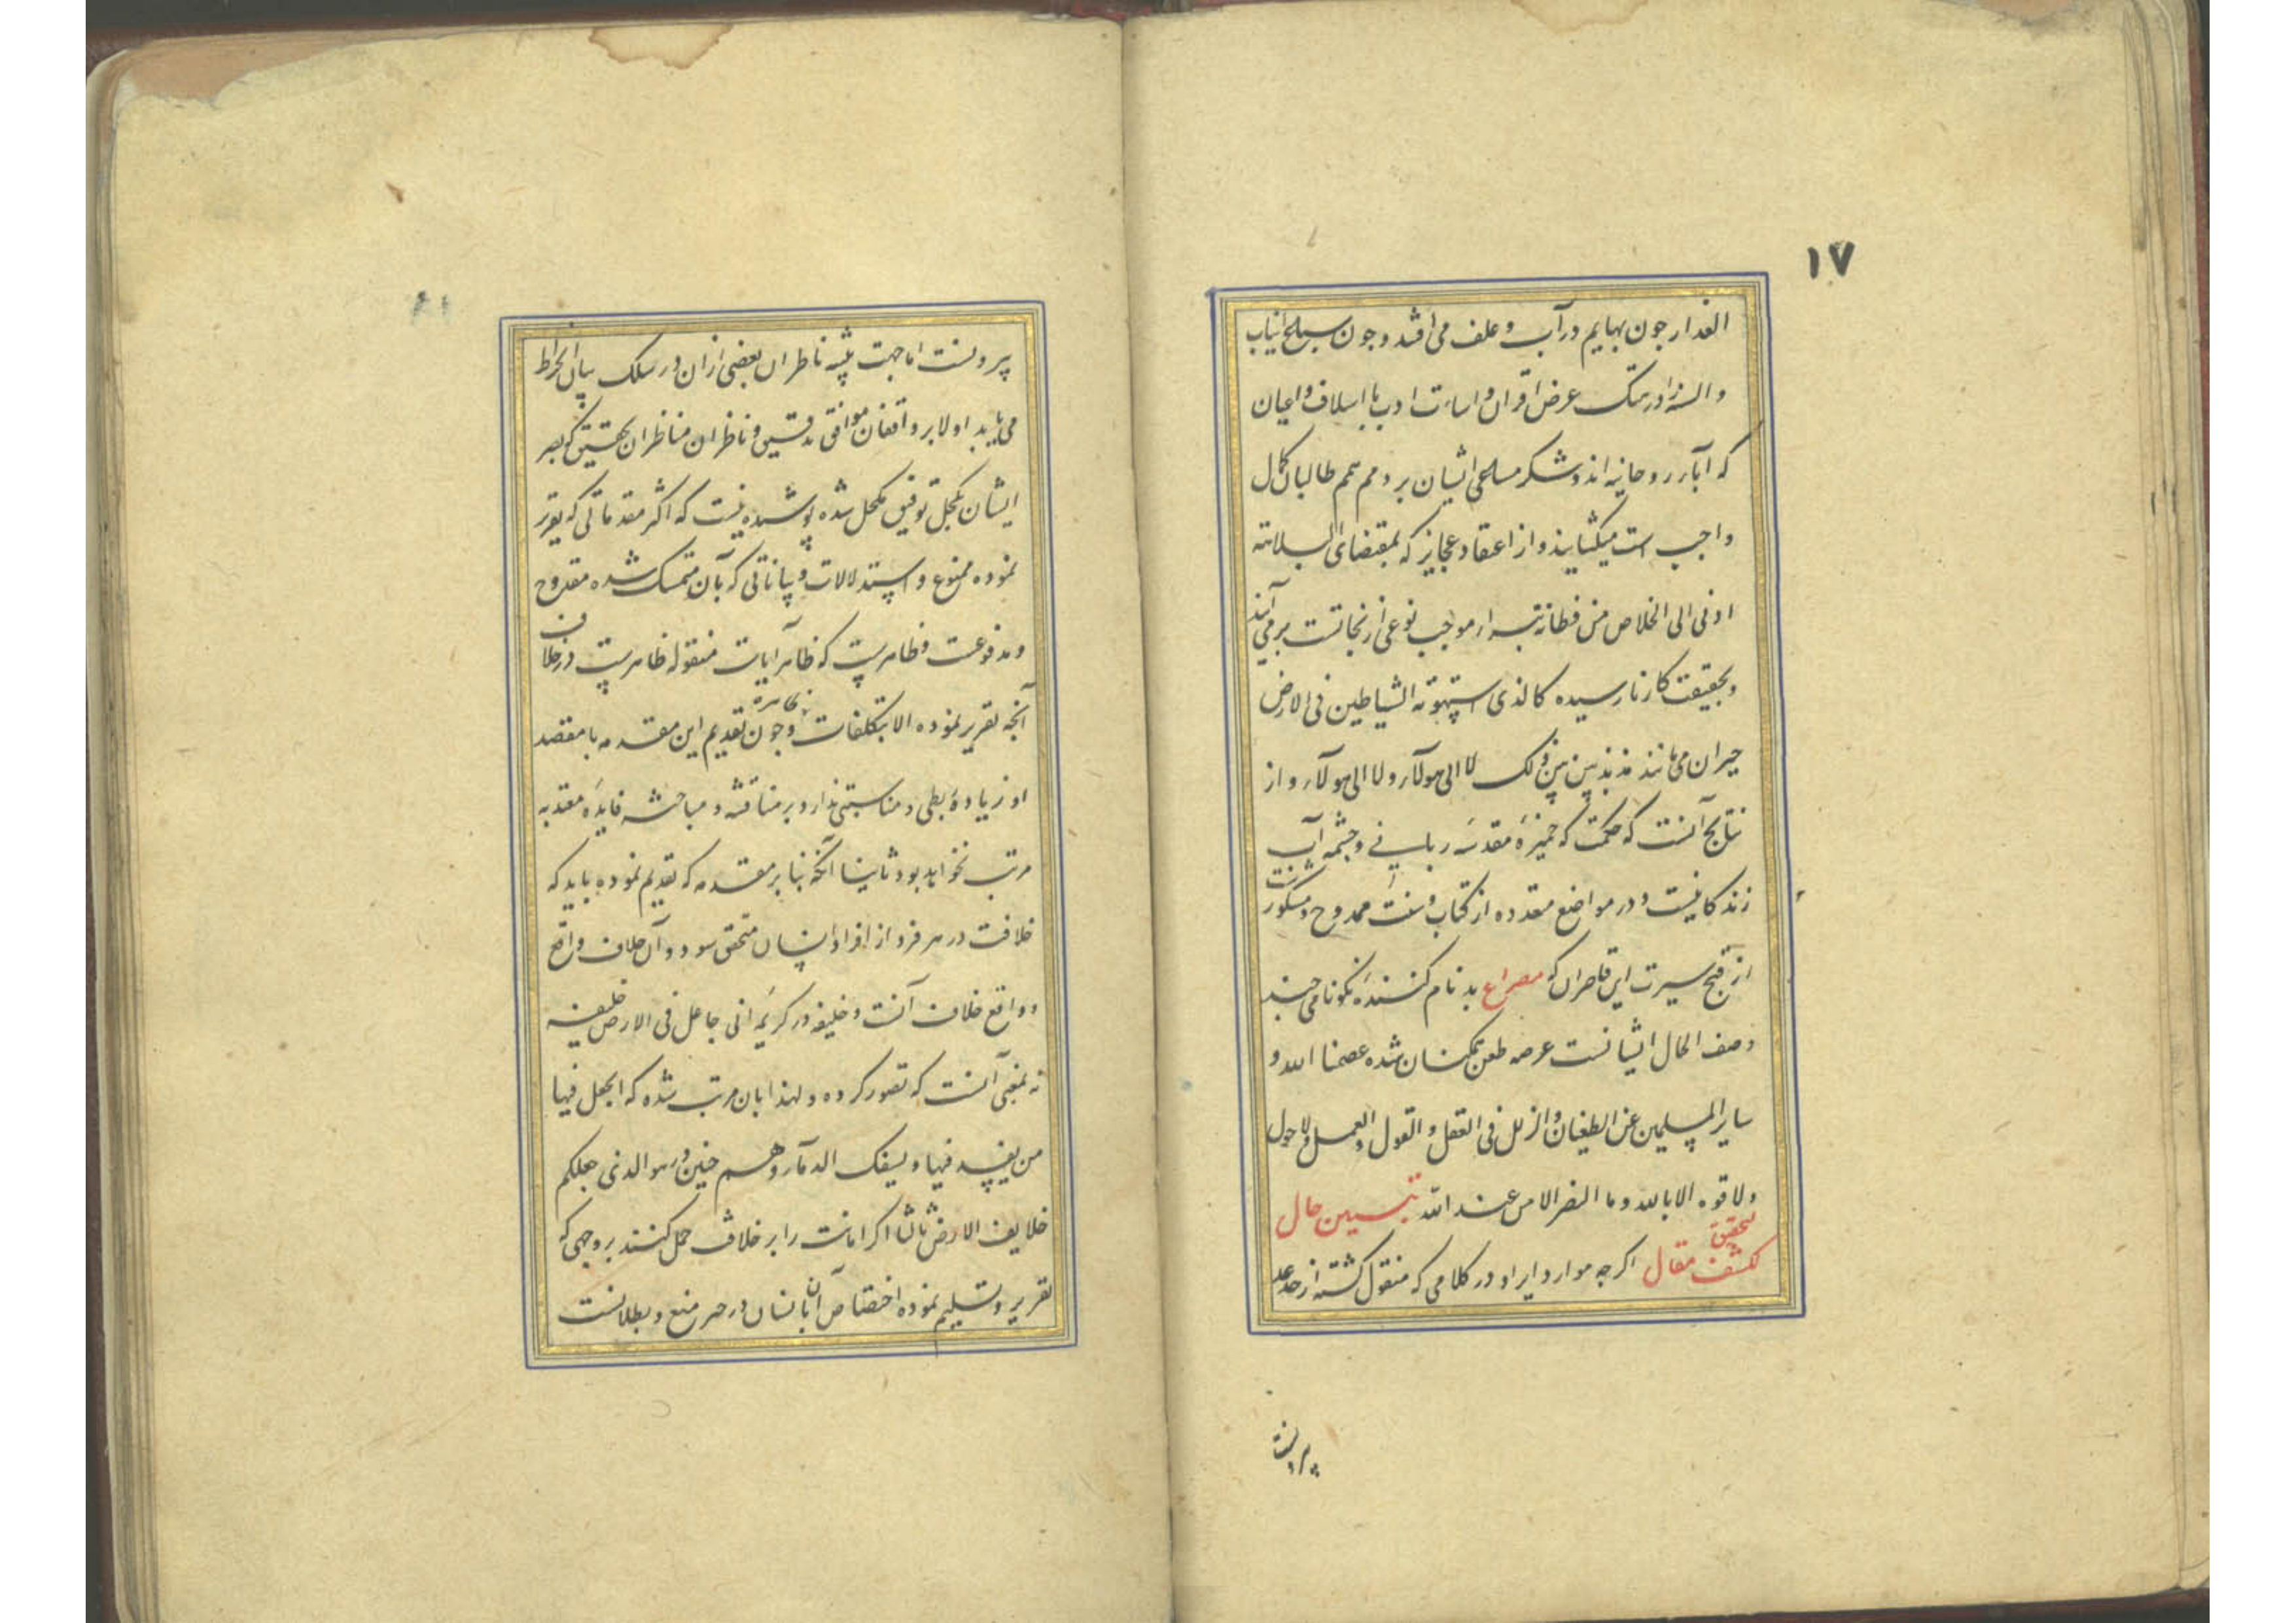 ۱۷
العذار چون بهایم در آب و علف می افتد و چون سباع انیاب
و السنه را در هتک عرض اقران و اساءت ادب با اسلاف و اعیان
که آباء روحانیه اند و شکر مساعی ایشان بر ذمم همم طالبان کمال
واجب است میکشایند و از اعتقاد عجایز که بمقتضای البلاهة
ادنی الی الخلاص من فطانة بتراء موجب نوعی از نجاتست برمی آیند
و بحقیقت کار نارسیده کالذی استهوته الشیاطین فی الارض
حیران می مانند مذبذبین بین ذلک لا الی هولاء ولا الی هولاء و از
نتایج آنست که حکمت که خمیرهٔ مقدسهٔ ربانی و چشمه آب
زندگانیست و در مواضع متعدده از کتاب و سنت ممدوح و مشکور
از قبح سیرت این قاصران که مصراع بدنام کنندهٔ نکونامی چند
وصف الحال ایشانست عرصه طعن شده عصمنا الله و
سایر المسلمین عن الطغیان والزلل فی العقل و القول و العمل ولا حول
ولا قوه الا بالله و ما النصر الا من عند الله تبیین حال
لتحقیق
کشف مقال اگرچه موارد ایراد در کلامی که منقول گشته از حد عد
بیرونست
بیرونست اما جهت تنبیه ناظران بعضی از آن در سلک بیان انخراط
می یابد اولا بر واقفان مواقف تدقیق و ناظران مناظر تحقیق که بصر
ایشان بکحل توفیق مکحل شده پوشیده نیست که اکثر مقدماتی که تقریر
نموده ممنوع و استدلالات و بیاناتی که بآن متمسک شده مقدوح
و مدفوعست و ظاهرست که ظاهر آیات منقوله ظاهرست در خلاف
آنچه تقریر نموده الا بتکلفات و چون تقدیم این مقدمه با مقصد
او زیادهٔ ربطی و مناسبتی ندارد بر مناقشه و مباحثه فایدهٔ معتد به
مرتب نخواهد بود ثانیا آنکه بنا بر مقدمه که تقدیم نموده باید که
خلافت در هر فرد از افراد انسان متحقق شود و آن خلاف واقع
و واقع خلاف آنست و خلیفه در کریمهٔ انی جاعل فی الارض خلیفه
نه بمعنی آنست که تصور کرده و لهذا بان مرتب شده که اتجعل فیها
من یفسد فیها و یسفک الدماء و همچنین در هو الذی جعلکم
خلایف الارض ثالثا اگر امانت را بر خلافت حمل کنند بر وجهی که
تقریر و تسلیم نموده اختصاص آن بانسان در حیز منع و بطلانست